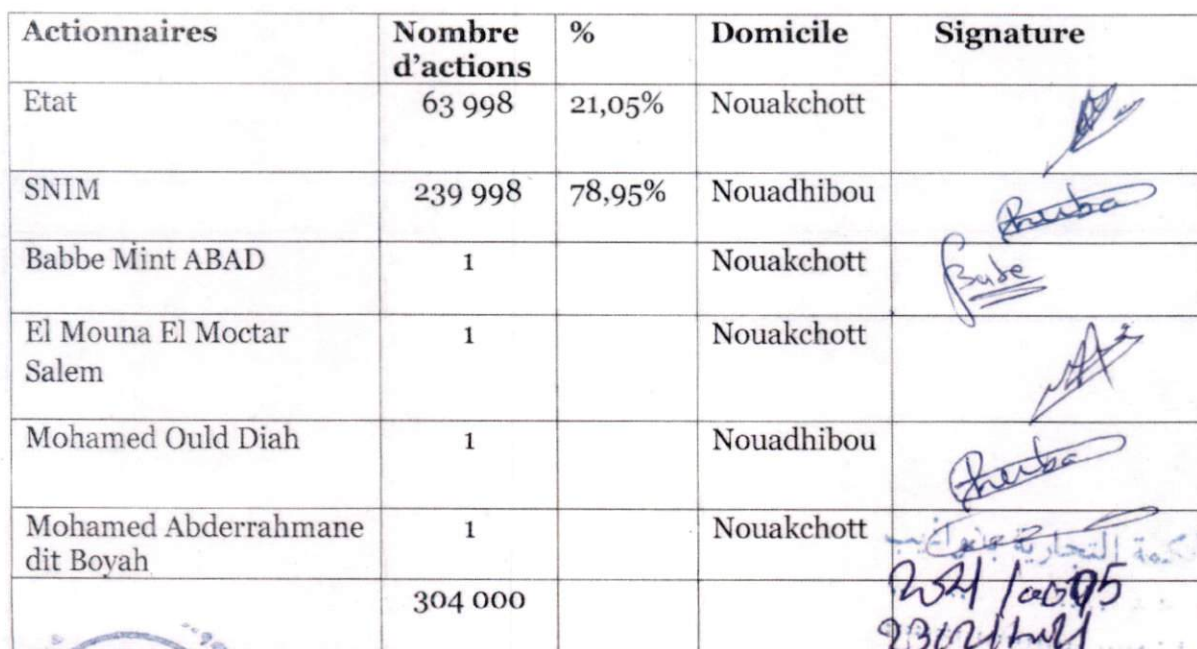 Actionnaires Nombre d'actions % Domicile Signature
Etat 63 998 21,05% Nouakchott
SNIM 239 998 78,95% Nouadhibou
Babbe Mint ABAD 1 Nouakchott
El Mouna El Moctar Salem 1 Nouakchott
Mohamed Ould Diah 1 Nouadhibou
Mohamed Abderrahmane dit Boyah 1 Nouakchott
304 000